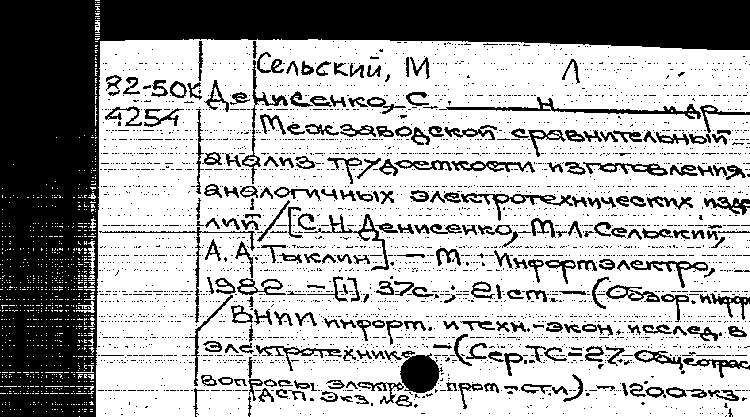 Сельский, М Л
82-50К Денисенко, С. Н. и др
4254
Межзаводской сравнительный
анализ трудоемкости изготовления
аналогичных электротехнических изде
лий / [С. Н. Денисенко, М. Л. Сельский,
А. А. Тыклин]. — М. : Информэлектро,
1982. — [1], 37с. ; 21 см. — (Обзор. инфор
/ ВНИИ информ. и техн.-экон. исслед. в
электротехнике — (Сер. ТС-27. Общеотрас
вопросы электро пром-сти). — 1200 экз.
ДСП. Экз. №